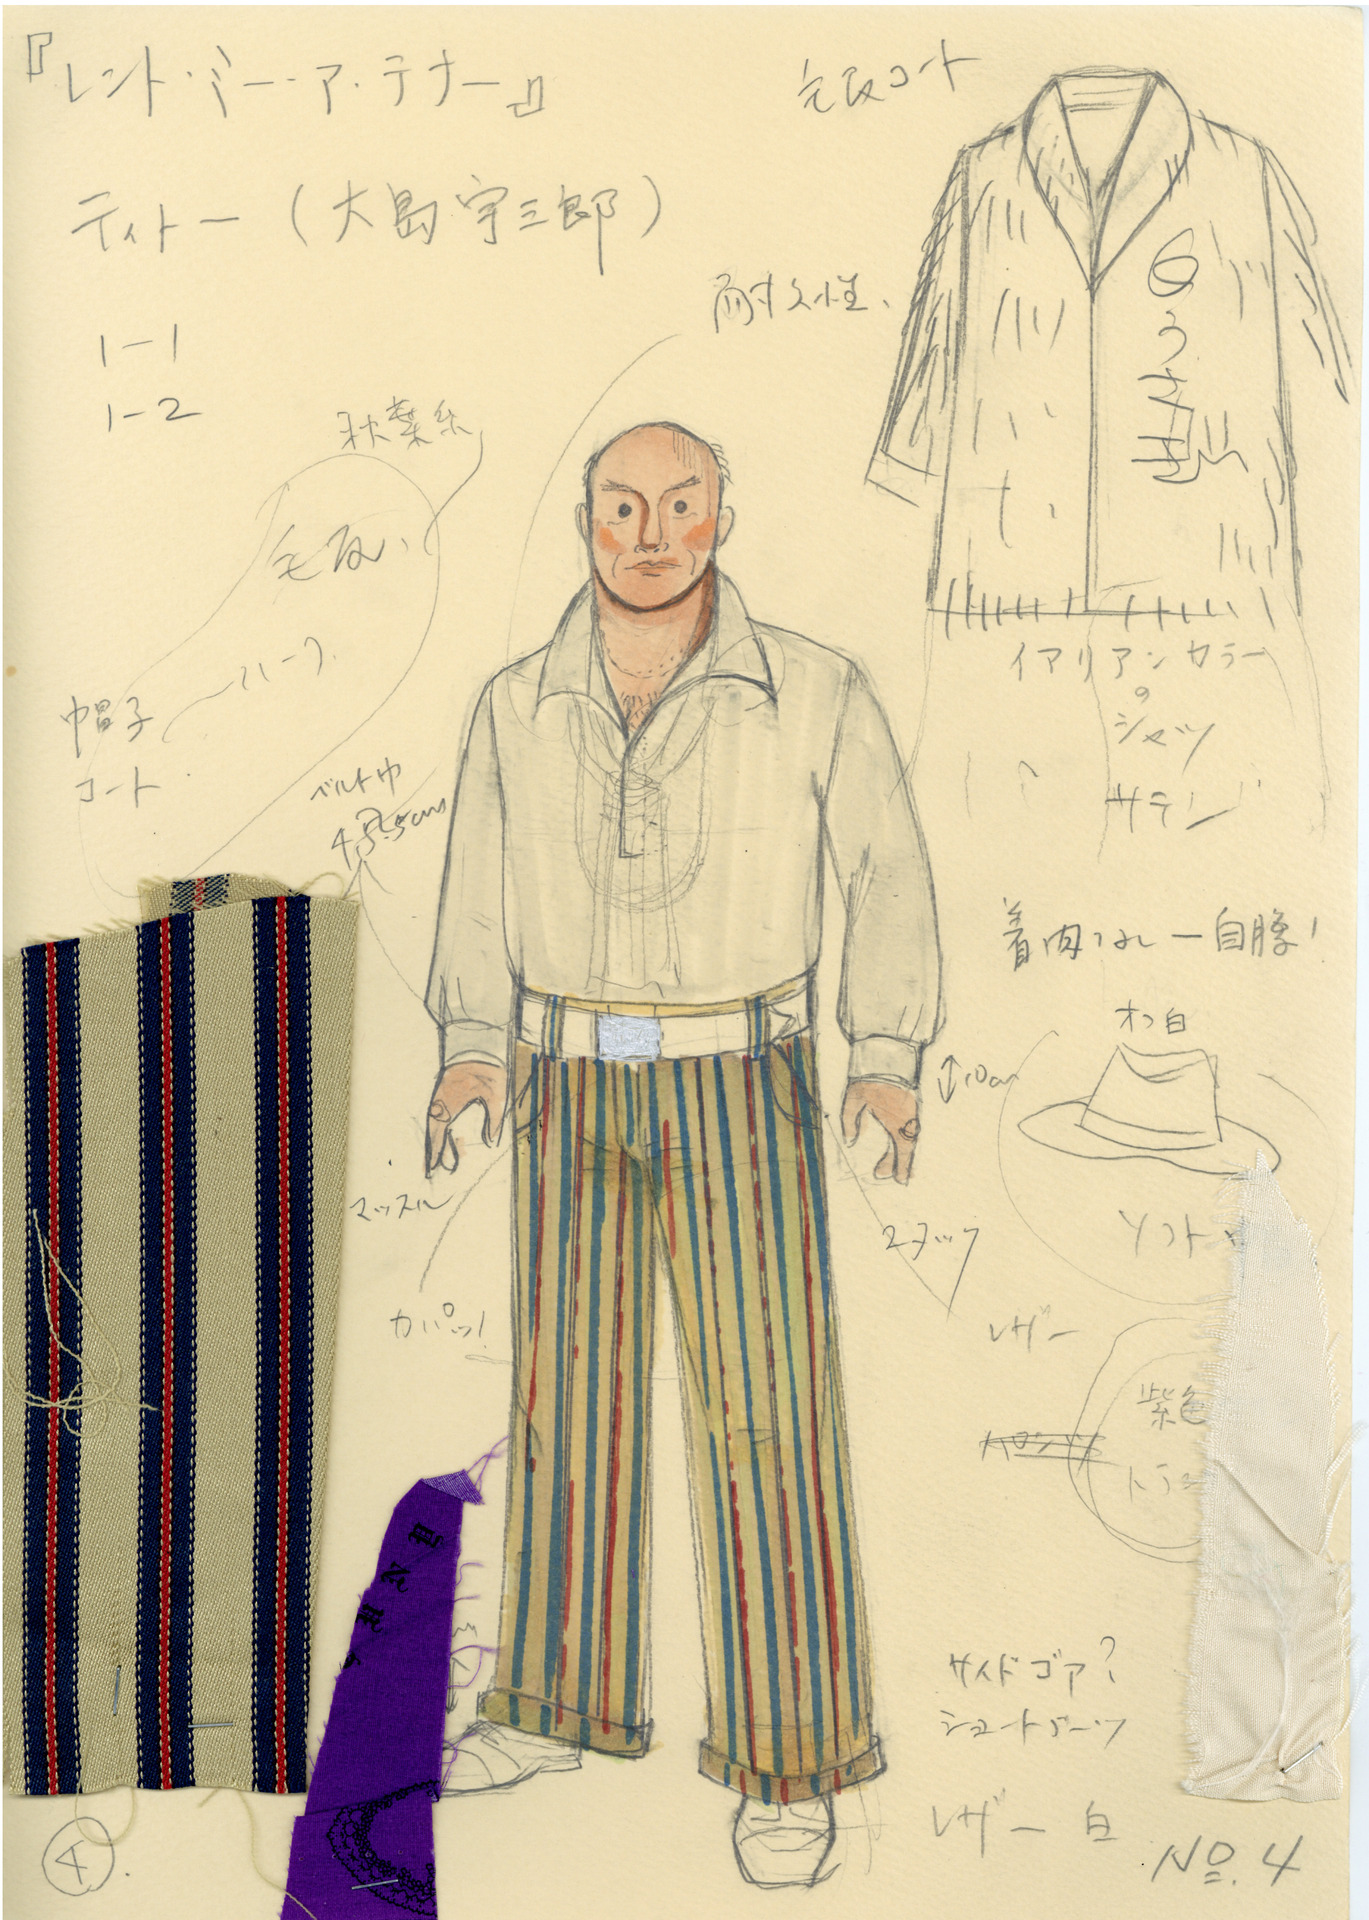 『レント・ミー・ア・テナー』
ティトー(大島宇三郎)
1-1
1-2
毛皮コート
白うさぎ
耐久性、
秋葉糸
毛皮、
ハーフ
帽子
コート
ベルト巾
イアリアンカラー
の
シャツ
サテン
オフ白
10cm
マッスル
2タック
カパッ!
ソフト
レザー
紫色
サイドゴア?
ショートブーツ
レザー 白
4
No. 4